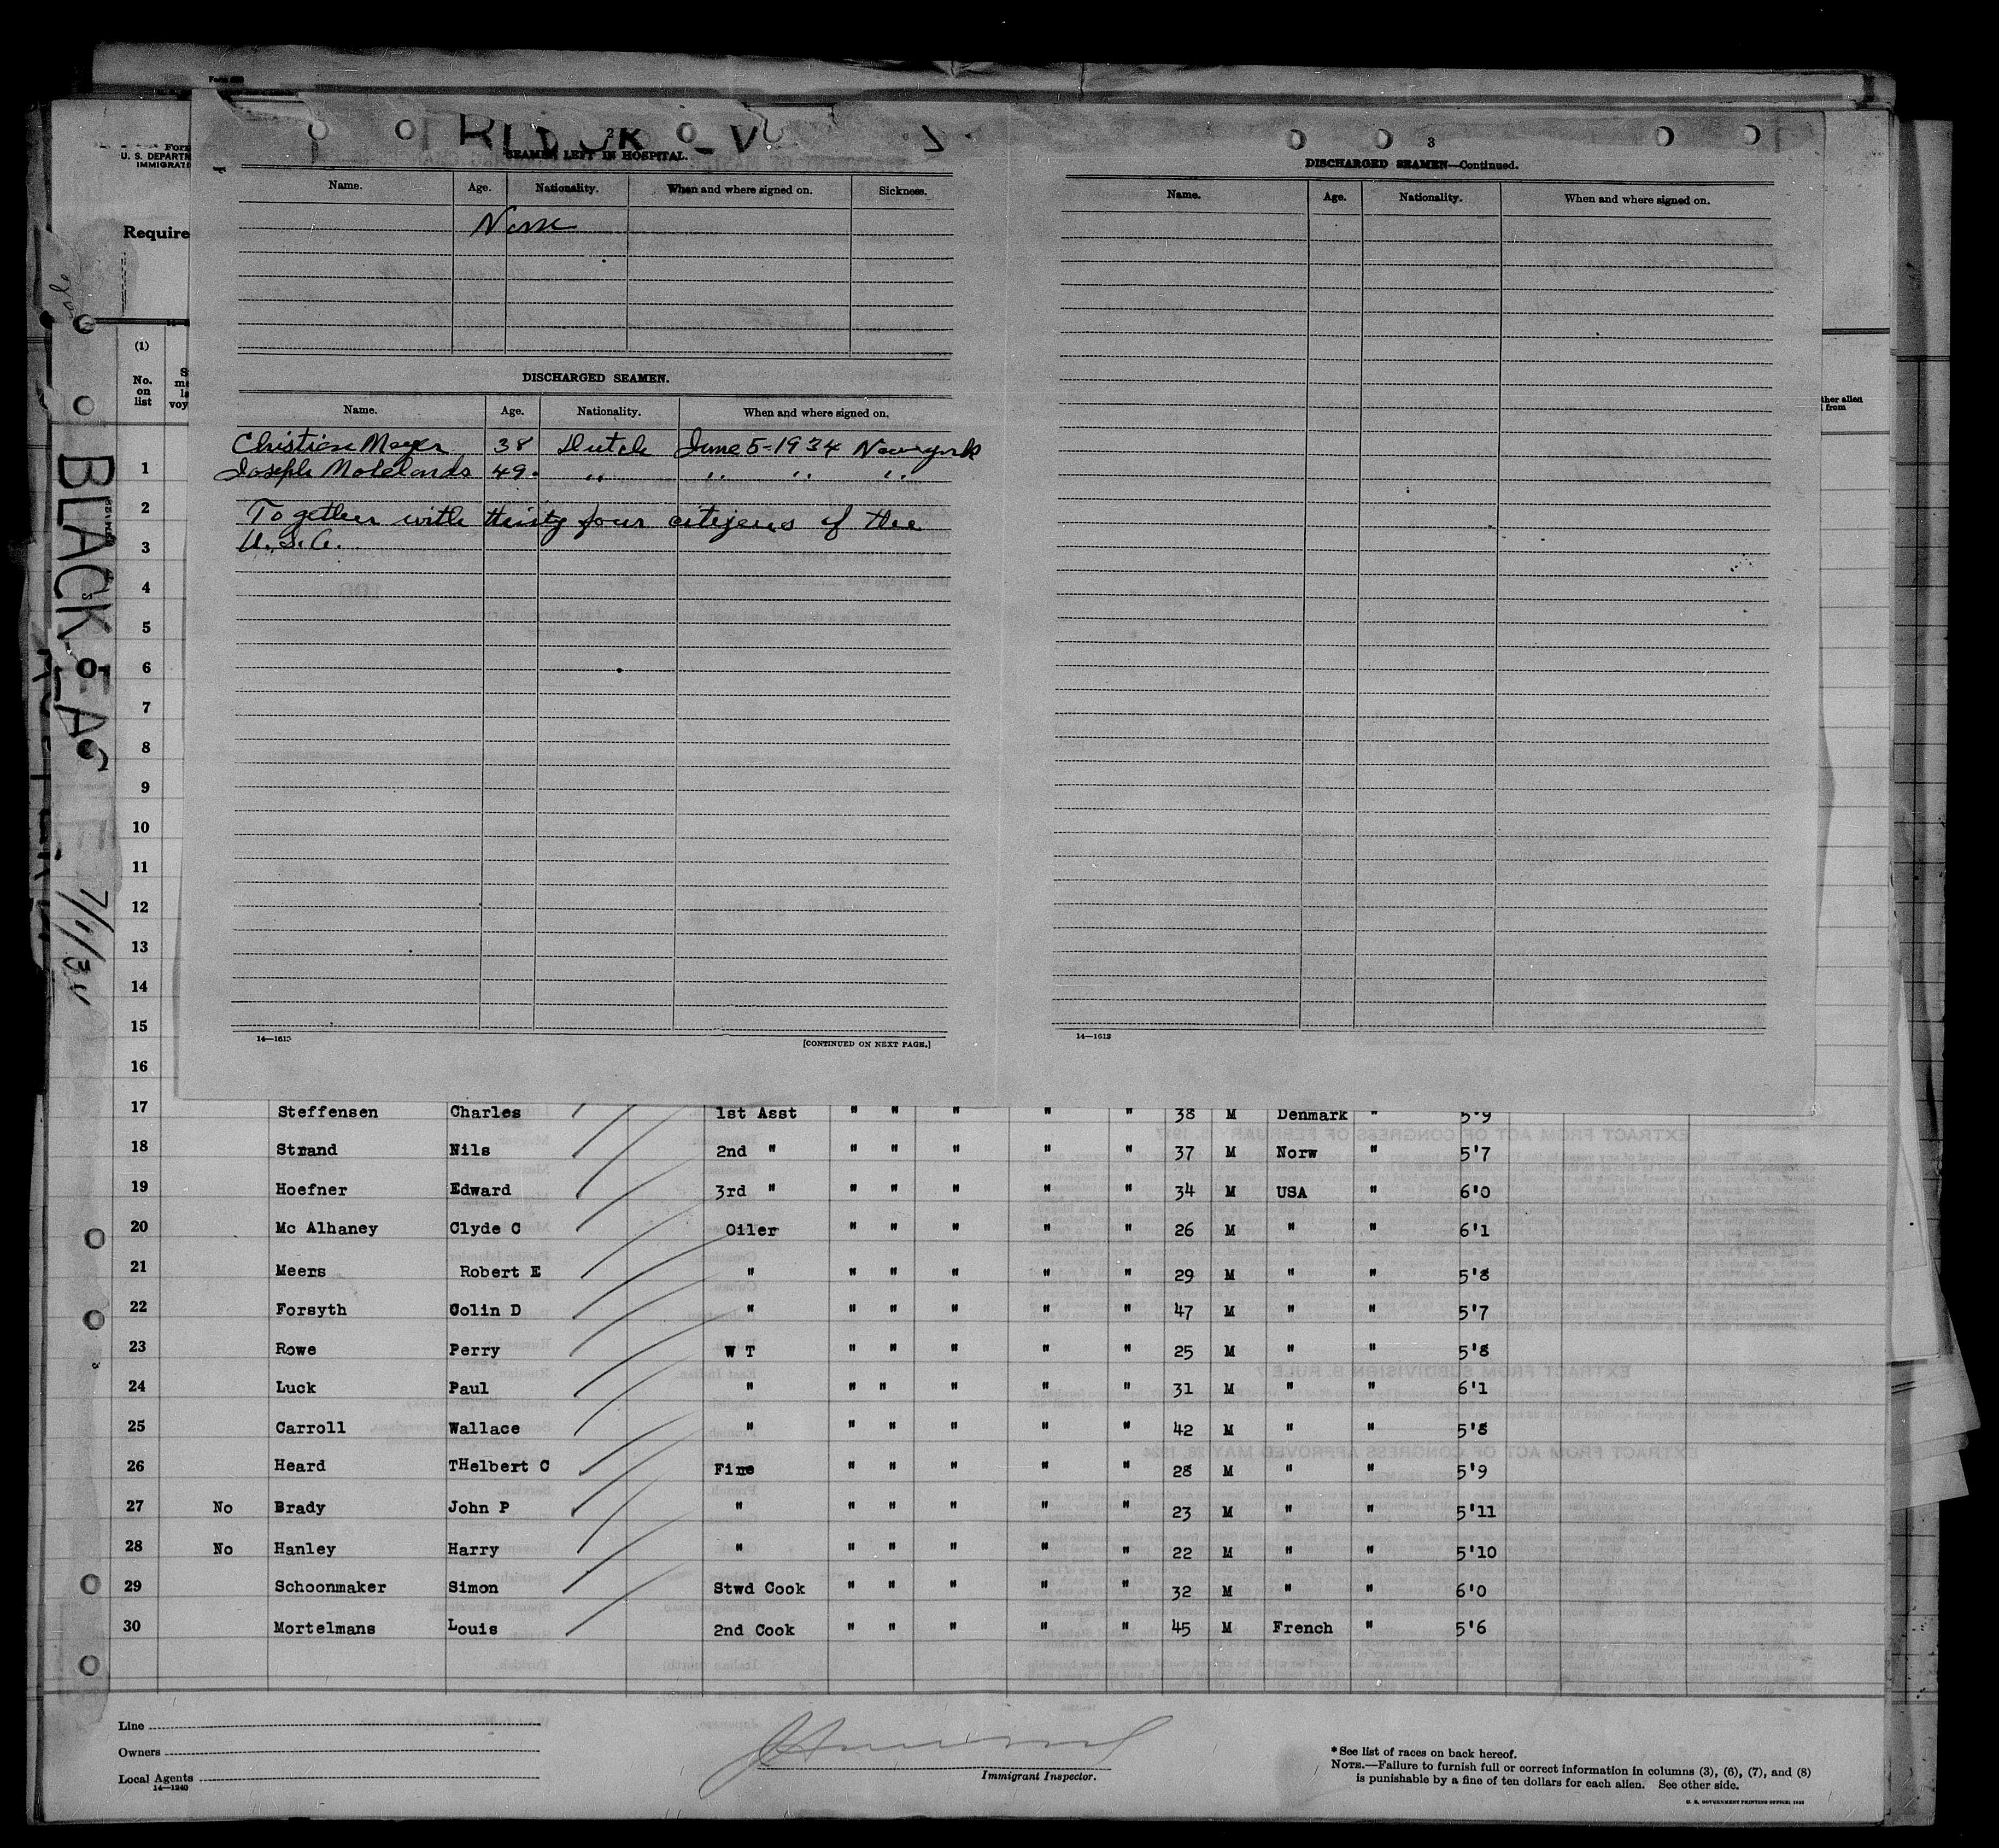 Form
U. S. DEPARTM
IMMIGRATI
Require
(1)
No.
on
list
2
SEAMEN LEFT IN HOSPITAL.
Name. Age. Nationality. When and where signed on. Sickness.
None
DISCHARGED SEAMEN.
Name. Age. Nationality. When and where signed on.
Christian Meyer 38 Dutch June 5-1934 New york
Joseph 49. " " " "
Together with thirty four citizens of the
U.S.A.
14—1613
[CONTINUED ON NEXT PAGE.]
3
DISCHARGED SEAMEN—Continued.
Name. Age. Nationality. When and where signed on.
14—1613
ther alien
from
BLACK EAGLE 7/1/34
1
2
3
4
5
6
7
8
9
10
11
12
13
14
15
16
17 Steffensen Charles 1st Asst " " " " " 38 M Denmark " 5'9
18 Strand Nils 2nd " " " " " " 37 M Norw " 5'7
19 Hoefner Edward 3rd " " " " " " 34 M USA " 6'0
20 Mc Alhaney Clyde C Oiler " " " " " 26 M " " 6'1
21 Meers Robert E " " " " " " 29 M " " 5'8
22 Forsyth Colin D " " " " " " 47 M " " 5'7
23 Rowe Perry W T " " " " " 25 M " " 5'8
24 Luck Paul " " " " " " 31 M " " 6'1
25 Carroll Wallace " " " " " " 42 M " " 5'8
26 Heard THelbert C Fire " " " " " 28 M " " 5'9
27 No Brady John P " " " " " " 23 M " " 5'11
28 No Hanley Harry " " " " " " 22 M " " 5'10
29 Schoonmaker Simon Stwd Cook " " " " " 32 M " " 6'0
30 Mortelmans Louis 2nd Cook " " " " " 45 M French " 5'6
Line
Owners
Local Agents
14—1240
Immigrant Inspector.
*See list of races on back hereof.
NOTE.—Failure to furnish full or correct information in columns (3), (6), (7), and (8)
is punishable by a fine of ten dollars for each alien. See other side.
U. S. GOVERNMENT PRINTING OFFICE: